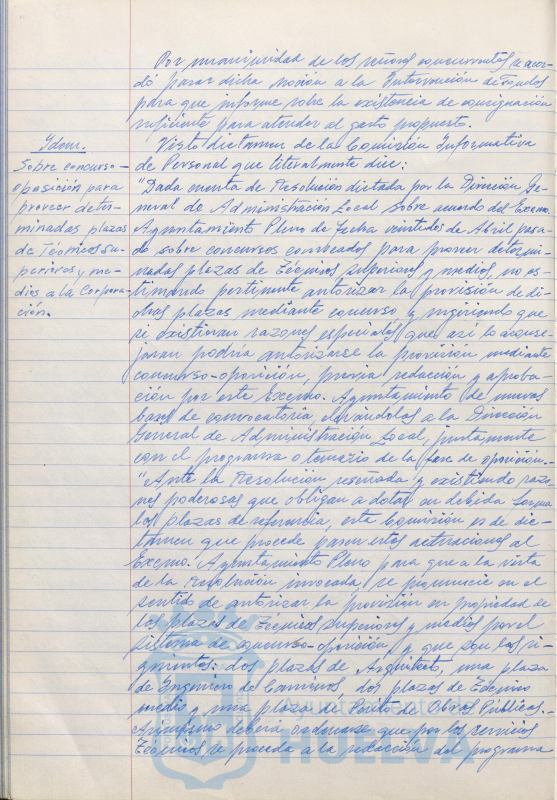 Por unanimidad de los señores concurrentes se acor-
dó pasar dicha moción a la Intervención de Fondos
para que informe sobre la existencia de consignación
suficiente para atender al gasto propuesto.
Idem.
Sobre concurso-
oposición para
proveer deter-
minadas plazas
de Técnicos su-
periores y me-
dios a la Corpora-
ción.
Visto dictamen de la Comisión Informativa
de Personal que literalmente dice:
"Dada cuenta de Resolución dictada por la Dirección Ge-
neral de Administración Local sobre acuerdo del Excmo.
Ayuntamiento Pleno de fecha veintidos de Abril pasa-
do sobre concursos convocados para proveer determi-
nadas plazas de Técnicos Superiores y medios, no es-
timando pertinente autorizar la provisión de di-
chas plazas mediante concurso y sugiriendo que
si existieran razones especiales que así lo aconse-
jaran podría autorizarse la provisión mediante
concurso-oposición, previa redacción y aproba-
ción por este Excmo. Ayuntamiento de nuevas
bases de convocatoria, elevándolas a la Dirección
General de Administración Local, juntamente
con el programa o temario de la fase de oposición.-
"Ante la Resolución reseñada y existiendo razo-
nes poderosas que obligan a dotar en debida forma
las plazas de referencia, esta Comisión es de dic-
tamen que procede pasen estas actuaciones al
Excmo. Ayuntamiento Pleno para que a la vista
de la Resolución invocada, se pronuncie en el
sentido de autorizar la provisión en propiedad de
las plazas de Técnicos Superiores y medios por el
sistema de concurso-oposición y que son las si-
guientes: dos plazas de Arquitecto, una plaza
de Ingeniero de Caminos, dos plazas de Técnico
medio y una plaza de Perito de Obras Públicas.-
Asimismo deberá ordenarse que por los servicios
Técnicos se proceda a la redacción del programa
Ayuntamiento de
HUELVA